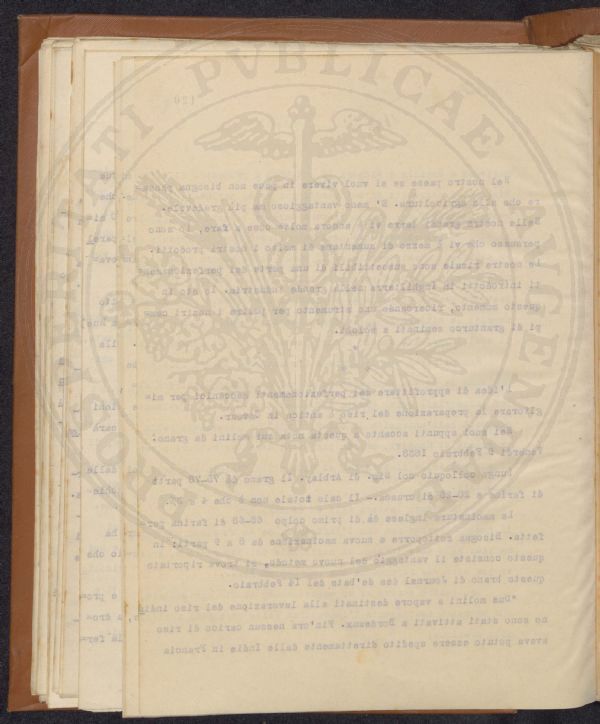 PROSPERITATI PVBLICAE AVGENDAE
120
Nel nostro paese se si vuol vivere in pace non bisogna pensa-
re che alla agricoltura. E' meno vantaggioso ma più gradevole.
Nelle nostre grandi terre vi è ancora molto a fare, io sono
persuaso che vi è mezzo di aumentare di molto i nostri prodotti.
Le nostre risaie sono suscettibili di una parte dei perfezionamen-
ti introdotti in Inghilterra nella grande industria. Io sto in
questo momento, ricercando uno strumento per pulire i nostri cam-
pi di granturco seminati a solchi.
L'idea di approfittare dei perfezionamenti meccanici per mi-
gliorare la preparazione del riso è antica in Cavour.
Nei suoi appunti accanto a questa nota sui molini da grano.
Venerdì 5 Febbraio
Lungo colloquio col Sig. di Arblay. Il grano dà 76-78 parti
di farina e 20-22 di crusca.- Il calo totale non è che
La macinatura inglese dà di primo colpo 66-68 di farina per
fetta. Bisogna sottoporre a nuova macinazione da 8 a 9 parti; in
questo consiste il vantaggio del nuovo metodo, si trova riportato
questo brano di Journal des de'bats del 14 Febbraio.
"Due molini a vapore destinati alla lavorazione del riso india
no sono stati attivati a Bordeaux. Fin'ora nessun carico di riso
aveva potuto essere spedito direttamente dalle Indie in Francia